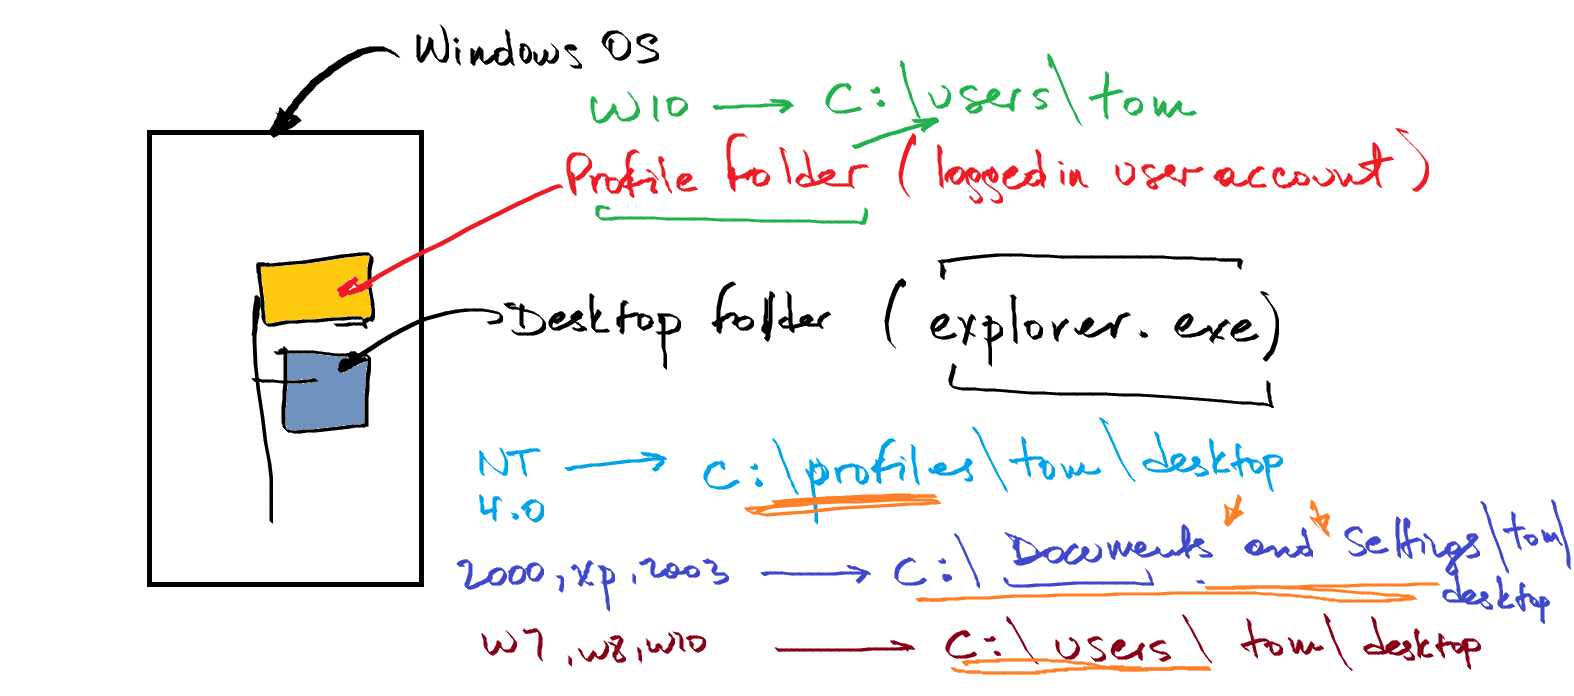 Windows OS
W10 → C:\users\tom
Profile folder (logged in user account)
Desktop folder (explorer.exe)
NT 4.0 → C:\profiles\tom\desktop
2000, xp, 2003 → C:\Documents and Settings\tom\desktop
W7, W8, W10 → C:\users\tom\desktop